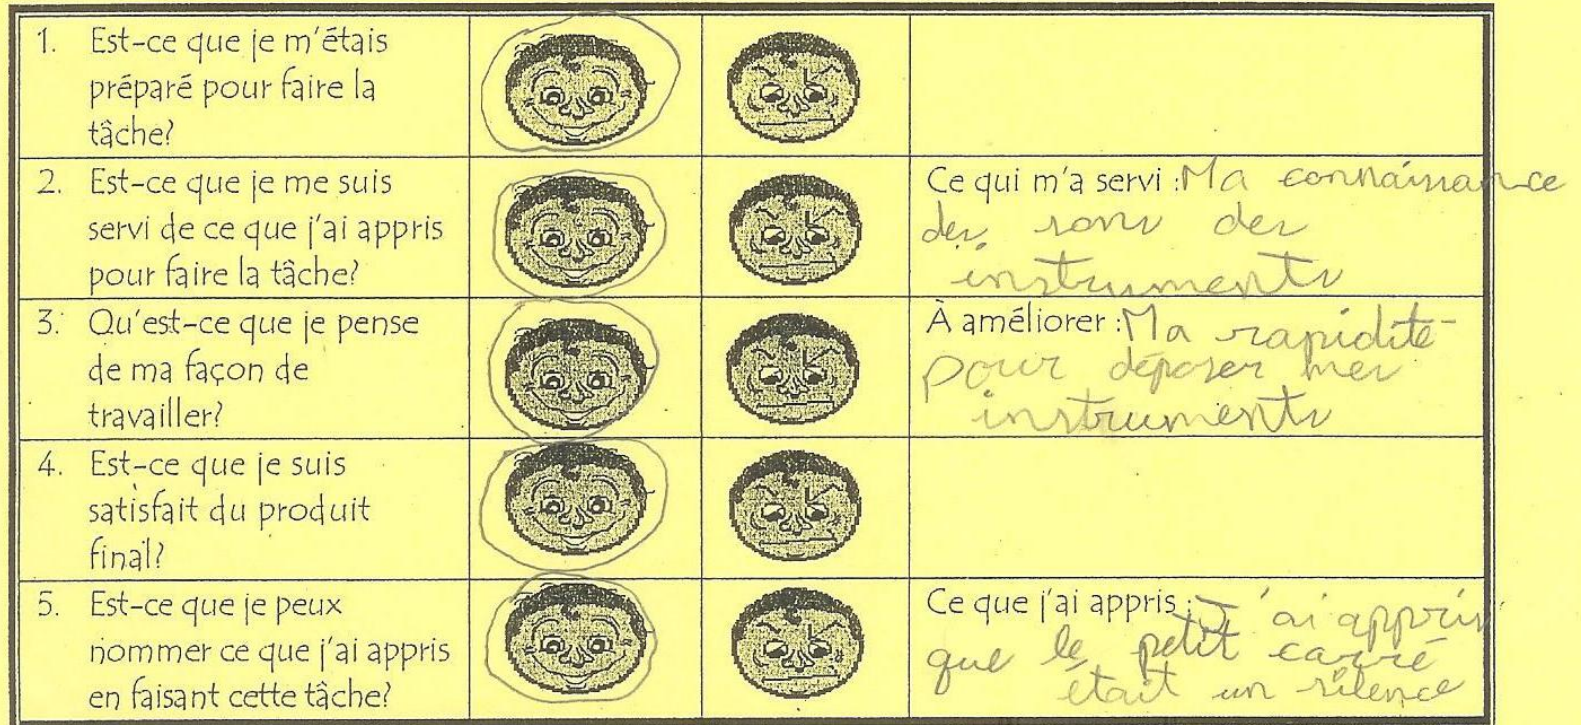 1. Est-ce que je m'étais
préparé pour faire la
tâche?
2. Est-ce que je me suis
servi de ce que j'ai appris
pour faire la tâche?
Ce qui m'a servi : Ma connaissance
des sons des
instruments
3. Qu'est-ce que je pense
de ma façon de
travailler?
À améliorer : Ma rapidité
pour déposer mes
instruments
4. Est-ce que je suis
satisfait du produit
final?
5. Est-ce que je peux
nommer ce que j'ai appris
en faisant cette tâche?
Ce que j'ai appris : J'ai appris
que le petit carré
était un silence